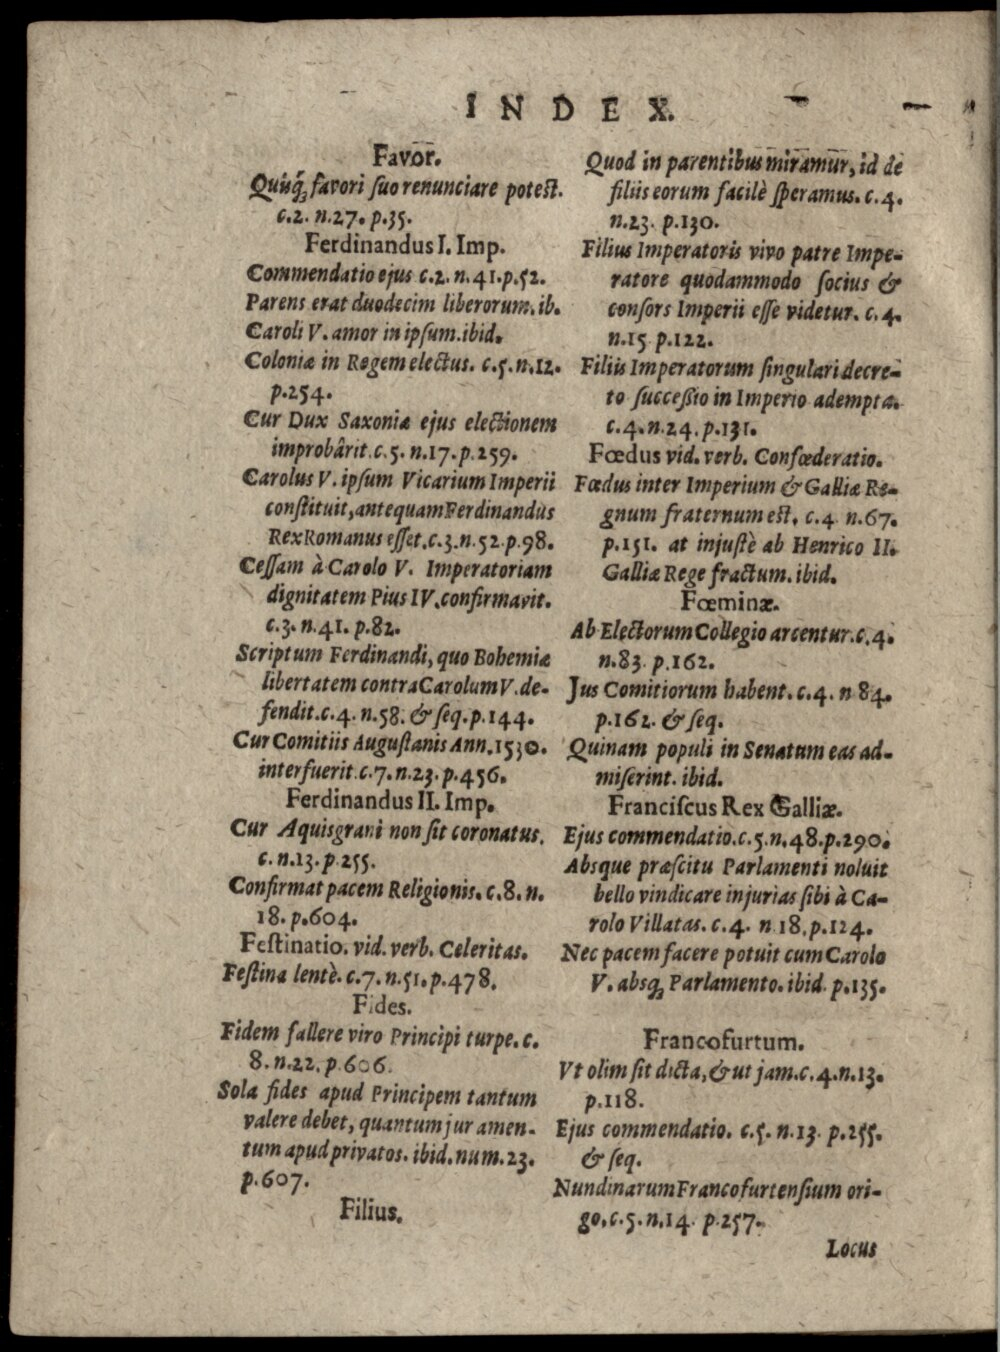 INDEX.
Favor.
Quiſq́ꝫ favori ſuo renunciare poteſt.
c.2. n.27. p.35.
Ferdinandus I. Imp.
Commendatio ejus c.2. n.41.p.52.
Parens erat duodecim liberorum. ib.
Caroli V. amor in ipſum.ibid.
Coloniæ in Regem electus. c.5.n.12.
p.254.
Cur Dux Saxoniæ ejus electionem
improbârit.c.5. n.17.p.259.
Carolus V. ipſum Vicarium Imperii
conſtituit, antequam Ferdinandus
Rex Romanus eſſet.c.3.n.52.p.98.
Ceſſam à Carolo V. Imperatoriam
dignitatem Pius IV.confirmavit.
c.3. n.41. p.82.
Scriptum Ferdinandi, quo Bohemiæ
libertatem contra Carolum V.de-
fendit.c.4. n.58. & ſeq.p.144.
Cur Comitiis Auguſtanis Ann.1530.
interfuerit.c.7.n.23.p.456.
Ferdinandus II. Imp.
Cur Aquisgrani non ſit coronatus.
c. n.13. p.255.
Confirmat pacem Religionis. c.8. n.
18. p.604.
Feſtinatio. vid. verb. Celeritas.
Feſtina lentè. c.7. n.51. p.478.
Fides.
Fidem fallere viro Principi turpe. c.
8. n.22. p.606.
Sola fides apud Principem tantum
valere debet, quantum juramen-
tum apud privatos. ibid. num.23.
p.607.
Filius.
Quod in parentibus miramur, id de
filiis eorum facilè ſperamus. c.4.
n.23. p.130.
Filius Imperatoris vivo patre Impe-
ratore quodammodo ſocius &
conſors Imperii eſſe videtur. c.4.
n.15 p.122.
Filiis Imperatorum ſingulari decre-
to ſucceßio in Imperio adempta.
c.4.n.24.p.131.
Fœdus vid. verb. Confœderatio.
Fœdus inter Imperium & Galliæ Re-
gnum fraternum eſt. c.4 n.67.
p.151. at injuſtè ab Henrico II.
Galliæ Rege fractum. ibid.
Fœminæ.
Ab Electorum Collegio arcentur.c.4.
n.83. p.162.
Jus Comitiorum habent. c.4. n 84.
p.162. & ſeq.
Quinam populi in Senatum eas ad-
miſerint. ibid.
Franciſcus Rex Galliæ.
Ejus commendatio.c.5.n.48.p.290.
Absque præſcitu Parlamenti noluit
bello vindicare injurias ſibi à Ca-
rolo Villatas. c.4. n.18.p.124.
Nec pacem facere potuit cum Carolo
V. absqꝫ Parlamento. ibid. p.135.
Francofurtum.
Vt olim ſit dicta, & ut jam.c.4.n.13.
p.118.
Ejus commendatio. c.5. n.13. p.255.
& ſeq.
Nundinarum Francofurtenſium ori-
go.c.5.n.14. p.257.
Locus